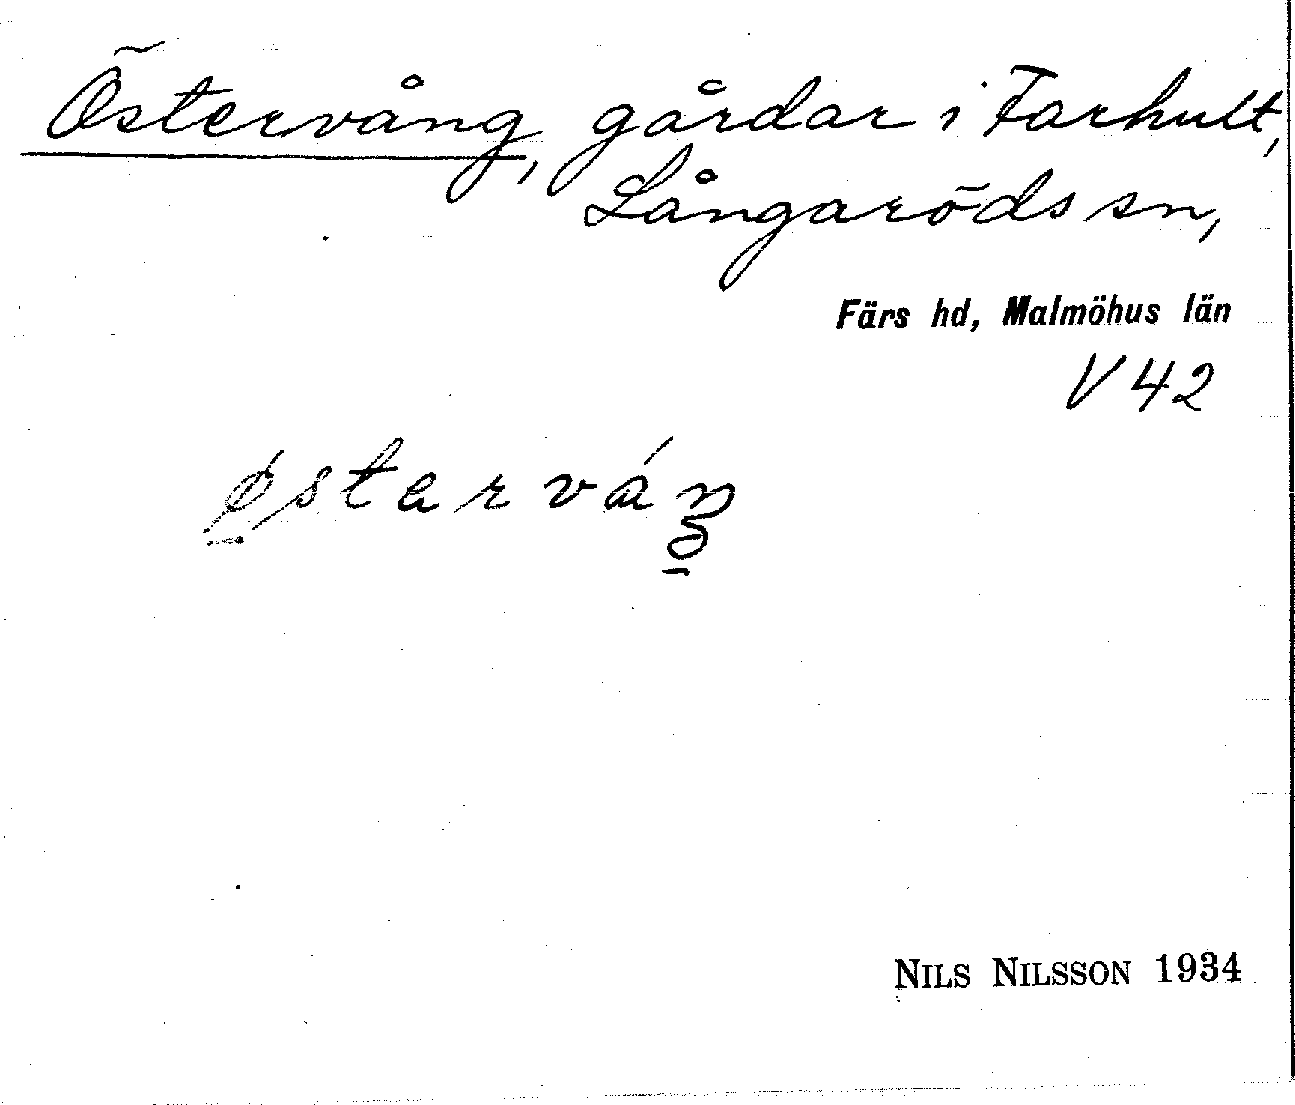 Östervång, gårdar i Farhult,
Långaröds sn,
Färs hd, Malmöhus län
V 42
østarváŋ
NILS NILSSON 1934